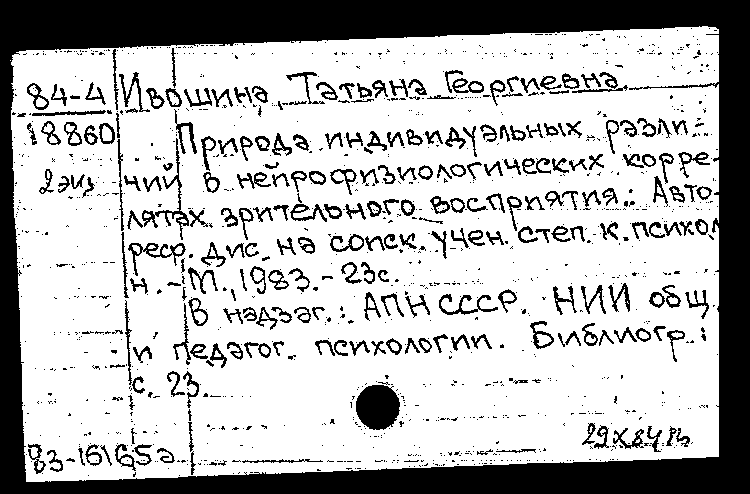 84-4 Ивошина, Татьяна Георгиевна.
18860 Природа индивидуальных разли-
2 экз чий в нейрофизиологических корре-
лятах зрительного восприятия.: Авто-
реф. дис. на соиск. учен. степ. к. психол
н. - М., 1983. - 23с.
В надзаг.: АПН СССР. НИИ общ.
и педагог. психологии. Библиогр.:
с. 23.
83-16165а
29 X 84